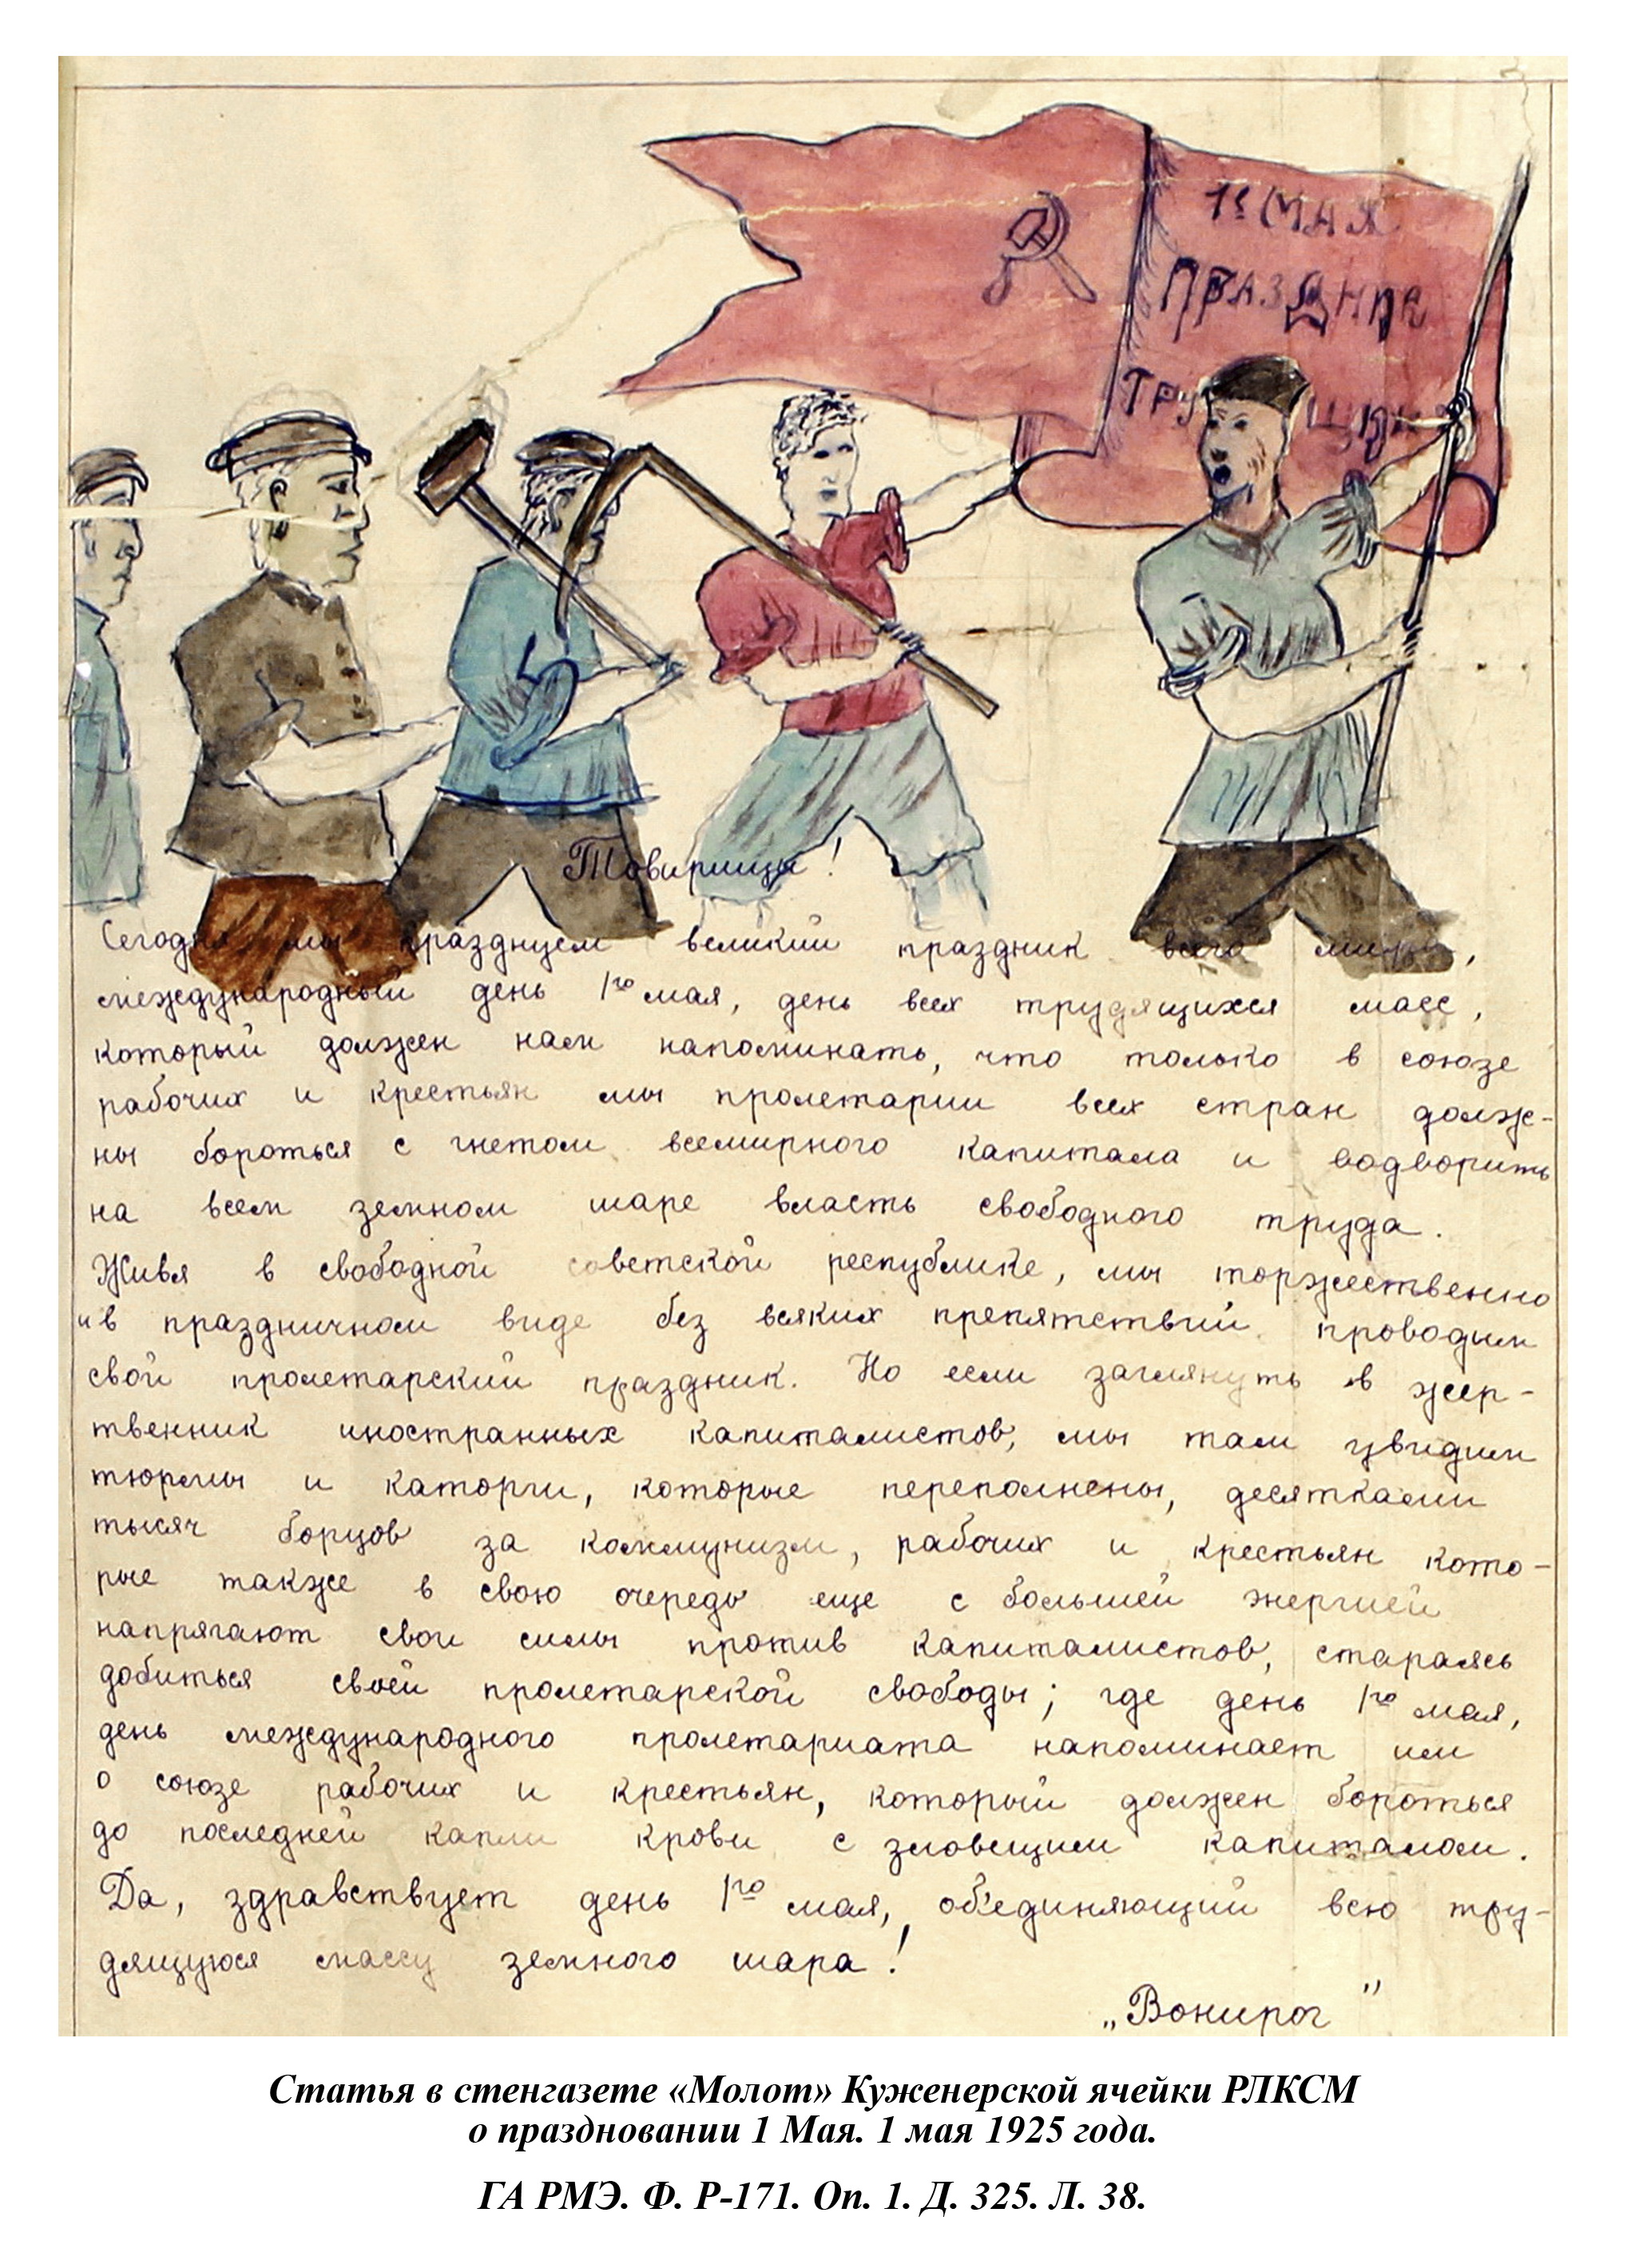 1е МАЯ
ПРАЗДНИК
ТРУ ЩИХ
Товарищи!
Сегодня мы празднуем великий праздник всего мира,
международный день 1го мая, день всех трудящихся масс,
который должен нам напоминать, что только в союзе
рабочих и крестьян мы пролетарии всех стран долж-
ны бороться с гнетом всемирного капитала и водворить
на всем земном шаре власть свободного труда.
Живя в свободной советской республике, мы торжественно
и в праздничном виде без всяких препятствий проводим
свой пролетарский праздник. Но если заглянуть в жер-
твенник иностранных капиталистов, мы там увидим
тюрмы и каторги, которые переполнены, десятками
тысяч борцов за коммунизм, рабочих и крестьян кото-
рые также в свою очередь еще с большей энергией
напрягают свои силы против капиталистов, стараясь
добиться своей пролетарской свободы; где день 1го мая,
день международного пролетариата напоминает им
о союзе рабочих и крестьян, который должен бороться
до последней капли крови с зловещим капиталом.
Да, здравствует день 1го мая, об'единяющий всю тру-
дящуюся массу земного шара!
„Вонирог"
Статья в стенгазете «Молот» Куженерской ячейки РЛКСМ
о праздновании 1 Мая. 1 мая 1925 года.
ГА РМЭ. Ф. Р-171. Оп. 1. Д. 325. Л. 38.